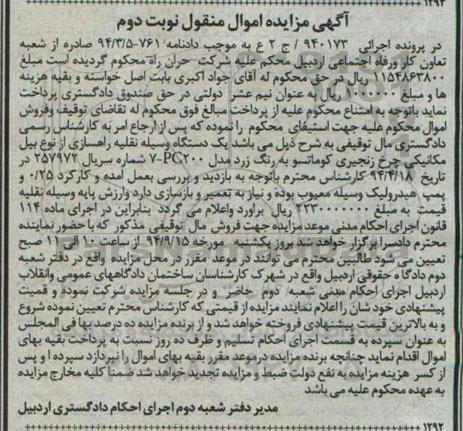 ۱۲۹۳
آگهی مزایده اموال منقول نوبت دوم
در پرونده اجرائی ۹۴۰۱۷۳ / ج ۲ ع به موجب دادنامه ۷۶۱-۹۴/۳/۵ صادره از شعبه
تعاون کار ورفاه اجتماعی اردبیل محکم علیه شرکت حران راه محکوم گردیده است مبلغ
۱۱۵۴۸۶۳۸۰۰ ریال در حق محکوم له آقای جواد اکبری بابت اصل خواسته و بقیه هزینه
ها و مبلغ ریال به عنوان نیم عشر دولتی در حق صندوق دادگستری پرداخت
نماید باتوجه به امتناع محکوم علیه از پرداخت مبالغ فوق محکوم له تقاضای توقیف وفروش
اموال محکوم علیه جهت استیفای محکوم را نموده که پس از ارجاع امر به کارشناس رسمی
دادگستری مال توقیفی به شرح ذیل می باشد یک دستگاه وسیله نقلیه راهسازی از نوع بیل
مکانیکی چرخ زنجیری کوماتسو به رنگ زرد مدل PC۲۰۰-۷ شماره سریال ۲۵۷۹۷۲ در
تاریخ ۹۴/۴/۱۸ کارشناس محترم باتوجه به بازدید و بررسی بعمل آمده و کارکرد ۰/۲۵ و
پمپ هیدرولیک وسیله معیوب بوده و نیاز به تعمیر و بازسازی دارد وارزش پایه وسیله نقلیه
قیمت به مبلغ ریال برآورد واعلام می گردد بنابراین در اجرای ماده ۱۱۴
قانون اجرای احکام مدنی موعد مزایده جهت فروش مال توقیفی مذکور که با حضور نماینده
محترم دادسرا برگزار خواهد شد بروز یکشنبه مورخه ۹۴/۹/۱۵ از ساعت ۱۰ الی ۱۱ صبح
تعیین می شود طالبین محترم می توانند در موعد مقرر در محل مزایده واقع در دفتر شعبه
دوم دادگاه حقوقی اردبیل واقع در شهرک کارشناسان ساختمان دادگاههای عمومی وانقلاب
اردبیل اجرای احکام مدنی شعبه دوم حاضر و در جلسه مزایده شرکت نموده و قمیت
پیشنهادی خودشان را اعلام نمایند مزایده از قیمتی که کارشناس محترم تعیین نموده شروع
و به بالاترین قیمت پیشنهادی فروخته خواهد شد و از برنده مزایده ده درصد بها فی المجلس
به عنوان سپرده به قسمت اجرای احکام تسلیم و ظرف ده روز نسبت به پرداخت بقیه بهای
اموال اقدام نماید چنانچه برنده مزایده درموعد مقرر بقیه بهای اموال را نپردازد سپرده او پس از
کسر هزینه مزایده به نفع دولت ضبط و مزایده تجدید خواهد شد ضمنا کلیه مخارج مزایده
به عهده محکوم علیه می باشد
مدیر دفتر شعبه دوم اجرای احکام دادگستری اردبیل
۱۲۹۲